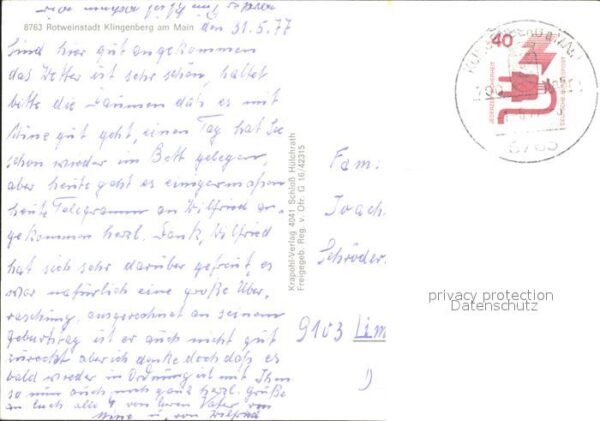 8763 Rotweinstadt Klingenberg am Main den 31.5.77
Sind hier gut angekommen
das Wetter ist sehr schön, haltet
bitte die Daumen daß es mit
Mine gut geht, einen Tag hat Sie
schon wieder im Bett gelegen,
aber heute geht es einigermaßen
heute Telegramm an Wilfried an-
gekommen herzl. Dank, Wilfried
hat sich sehr darüber gefreut, es
war natürlich eine große Über
raschung. ausgerechnet an seinem
Geburtstag ist er auch nicht gut
zurecht aber ich denke doch daß es
bald wieder in Ordnung ist mit Ihm
so nun auch noch ganz herzl. Grüße
an Euch alle 4 von Vater von
Mine u. von Wilfried
Krapohl-Verlag 4041 Schloß Hülchrath
Freigegeb. Reg. v. Obf. G 16/42315
40
JEDERZEIT SICHERHEIT
DEUTSCHE BUNDESPOST
8763
Fam:
Joach.
Schröder.
9103 Lim
privacy protection
Datenschutz